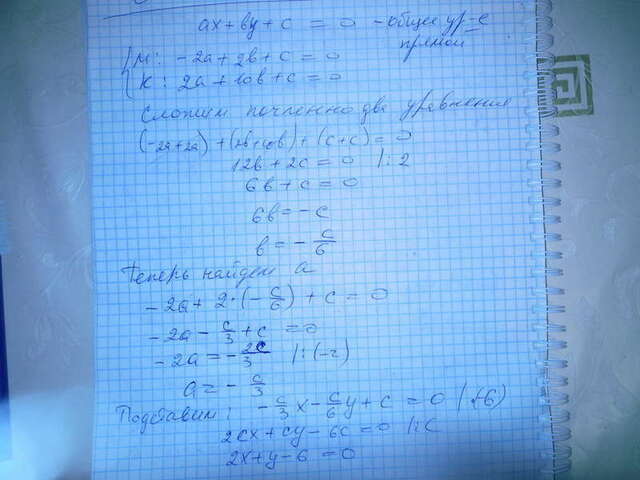 ax + by + c = 0 - общее ур-е
прямой
M: -2a + 2b + c = 0
K: 2a + 10b + c = 0
Сложим почленно два уравнения
(-2a+2a) + (2b+10b) + (c+c) = 0
12b + 2c = 0 /:2
6b + c = 0
6b = -c
b = - c/6
Теперь найдем a
-2a + 2·(-c/6) + c = 0
-2a - c/3 + c = 0
-2a = -2c/3 /:(-2)
a = - c/3
Подставим: -c/3 x - c/6 y + c = 0 /(-6)
2cx + cy - 6c = 0 /:c
2x + y - 6 = 0